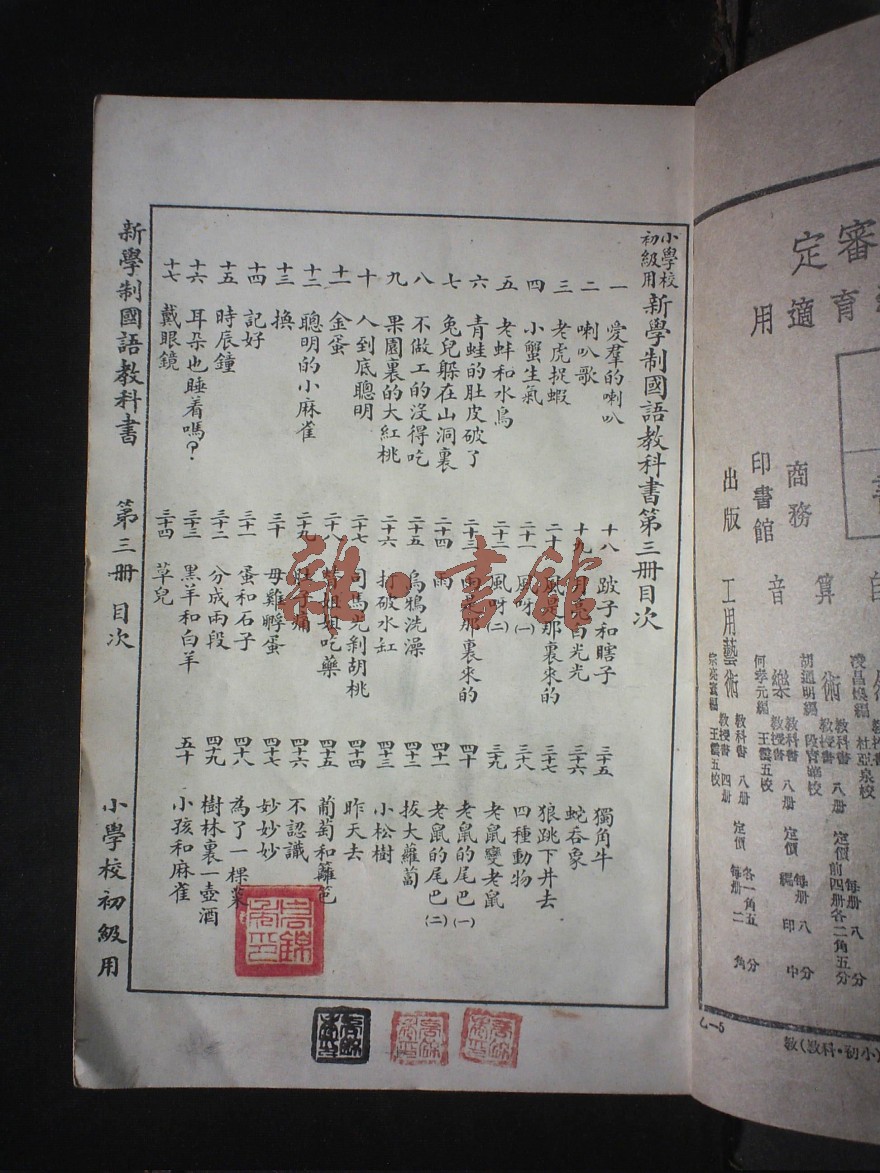 小學校初級用 新學制國語教科書第三冊目次
一 愛羣的喇叭
二 喇叭歌
三 老虎捉蝦
四 小蟹生氣
五 老蚌和水鳥
六 青蛙的肚皮破了
七 兔兒躲在山洞裏
八 不做工的沒得吃
九 果園裏的大紅桃
十 人到底聰明
十一 金蛋
十二 聰明的小麻雀
十三 換
十四 記好
十五 時辰鐘
十六 耳朵也睡着嗎？
十七 戴眼鏡
十八 跛子和瞎子
十九 月亮白光光
二十 風是那裏來的
二十一 風呀(一)
二十二 風呀(二)
二十三 雨是那裏來的
二十四 雨
二十五 烏鴉洗澡
二十六 打破水缸
二十七 司馬光剝胡桃
二十八 蜻姐姐吃藥
二十九 肚子痛
三十 母雞孵蛋
三十一 蛋和石子
三十二 分成兩段
三十三 黑羊和白羊
三十四 草兒
三十五 獨角牛
三十六 蛇吞象
三十七 狼跳下井去
三十八 四種動物
三十九 老鼠變老鼠
四十 老鼠的尾巴(一)
四十一 老鼠的尾巴(二)
四十二 拔大蘿蔔
四十三 小松樹
四十四 昨天去
四十五 葡萄和籬笆
四十六 不認識
四十七 妙妙妙
四十八 為了一棵菜
四十九 樹林裏一壺酒
五十 小孩和麻雀
新學制國語教科書 第三冊 目次 小學校初級用
雜·書館
審
定
育
適
用
商務
印書館
出版
自
算術
胡通明編 段育華校
教科書 八册 定價 每册八分
教授書
音樂
何孝元編 王雲五校
工用藝術
宗亮寰編 王雲五校
教科書 八册 定價 各一角五分
教授書 四册 每册二角
凌昌煥編 杜亞泉校
乙—5